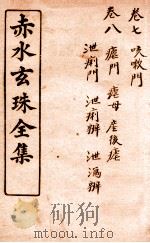 卷七 咳嗽門
卷八 瘧門 瘧母 產後瘧
泄痢門 泄痢辨 泄瀉辨
赤水玄珠全集